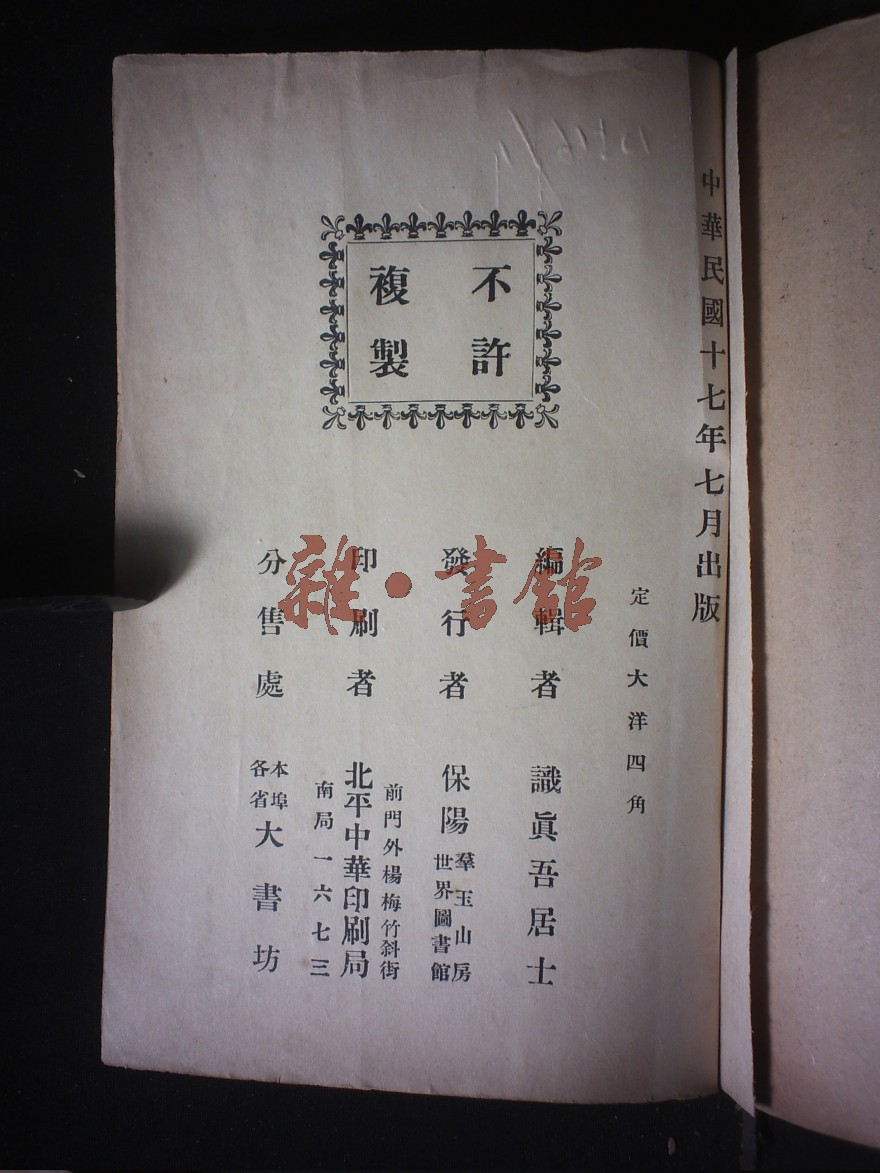 中華民國十七年七月出版
定價大洋四角
不許
複製
編輯者 識眞吾居士
發行者 保陽 羣玉山房 世界圖書館
印刷者 前門外楊梅竹斜街 北平中華印刷局 南局一六七三
分售處 本埠各省大書坊
雜·書館